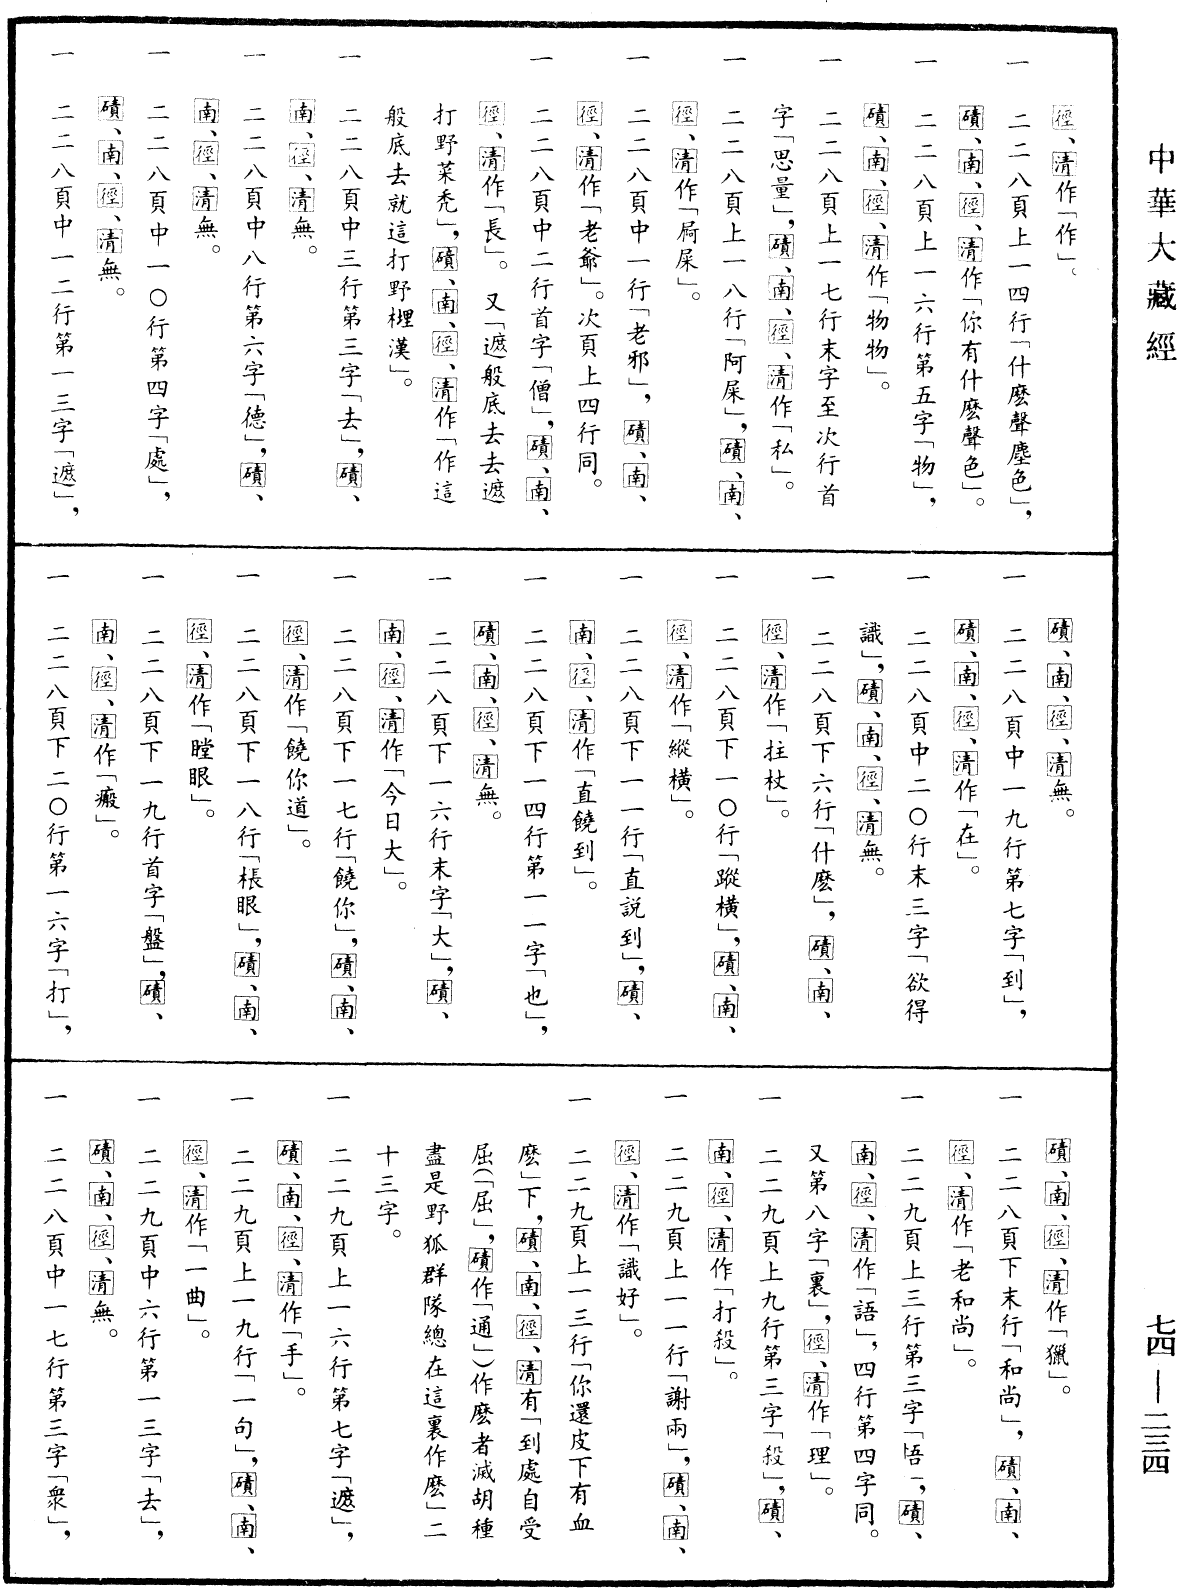 中華大藏經
徑、清作「作」。
一　二二八頁上一四行「什麽聲塵色」，
磧、南、徑、清作「你有什麽聲色」。
一　二二八頁上一六行第五字「物」，
磧、南、徑、清作「物物」。
一　二二八頁上一七行末字至次行首
字「思量」，磧、南、徑、清作「私」。
一　二二八頁上一八行「阿屎」，磧、南、
徑、清作「屙屎」。
一　二二八頁中一行「老邪」，磧、南、
徑、清作「老爺」。次頁上四行同。
一　二二八頁中二行首字「僧」，磧、南、
徑、清作「長」。又「遮般底去去遮
打野菜禿」，磧、南、徑、清作「作這
般底去就這打野榸漢」。
一　二二八頁中三行第三字「去」，磧、
南、徑、清無。
一　二二八頁中八行第六字「德」，磧、
南、徑、清無。
一　二二八頁中一〇行第四字「處」，
磧、南、徑、清無。
一　二二八頁中一二行第一三字「遮」，
磧、南、徑、清無。
一　二二八頁中一九行第七字「到」，
磧、南、徑、清作「在」。
一　二二八頁中二〇行末三字「欲得
識」，磧、南、徑、清無。
一　二二八頁下六行「什麽」，磧、南、
徑、清作「拄杖」。
一　二二八頁下一〇行「蹤橫」，磧、南、
徑、清作「縱橫」。
一　二二八頁下一一行「直説到」，磧、
南、徑、清作「直饒到」。
一　二二八頁下一四行第一一字「也」，
磧、南、徑、清無。
一　二二八頁下一六行末字「大」，磧、
南、徑、清作「今日大」。
一　二二八頁下一七行「饒你」，磧、南、
徑、清作「饒你道」。
一　二二八頁下一八行「棖眼」，磧、南、
徑、清作「瞠眼」。
一　二二八頁下一九行首字「盤」，磧、
南、徑、清作「瘢」。
一　二二八頁下二〇行第一六字「打」，
磧、南、徑、清作「獵」。
一　二二八頁下末行「和尚」，磧、南、
徑、清作「老和尚」。
一　二二九頁上三行第三字「悟」，磧、
南、徑、清作「語」，四行第四字同。
又第八字「裏」，徑、清作「理」。
一　二二九頁上九行第三字「殺」，磧、
南、徑、清作「打殺」。
一　二二九頁上一一行「謝兩」，磧、南、
徑、清作「識好」。
一　二二九頁上一三行「你還皮下有血
麽」下，磧、南、徑、清有「到處自受
屈（「屈」，磧作「通」）作麽者滅胡種
盡是野狐群隊總在這裏作麽」二
十三字。
一　二二九頁上一六行第七字「遮」，
磧、南、徑、清作「手」。
一　二二九頁上一九行「一句」，磧、南、
徑、清作「一曲」。
一　二二九頁中六行第一三字「去」，
磧、南、徑、清無。
一　二二八頁中一七行第三字「衆」，
七四—二三四